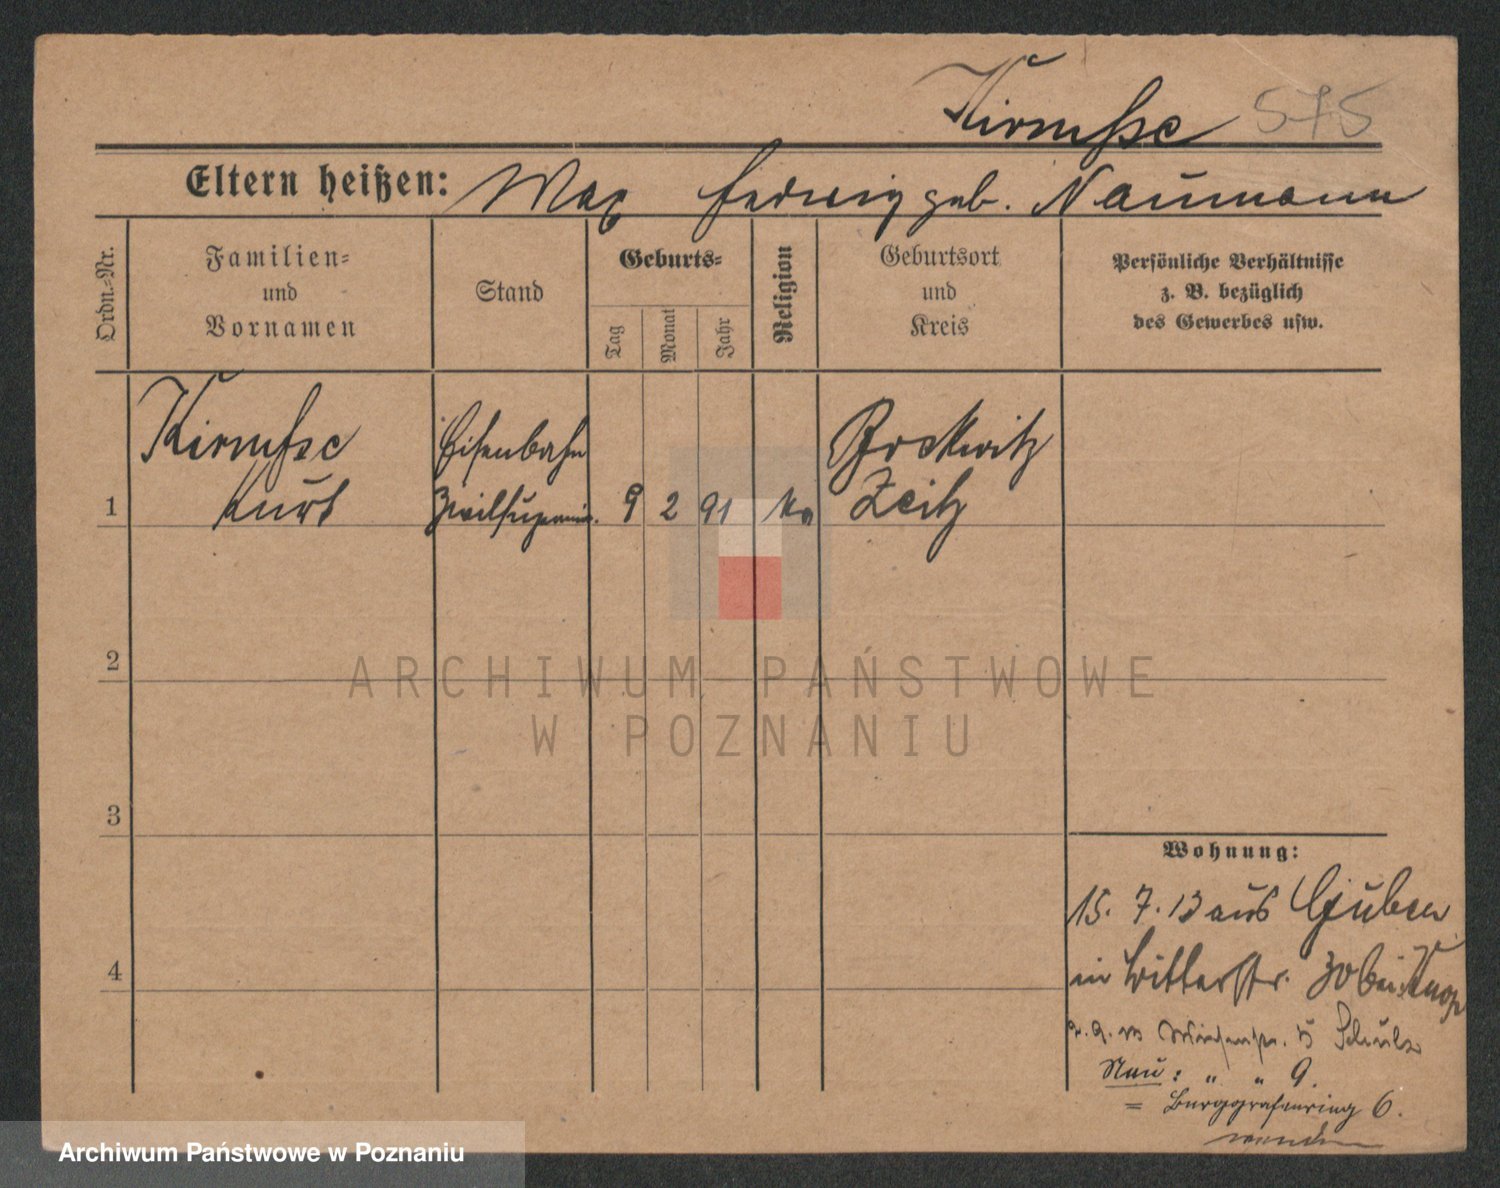 Kirmsse 575
Eltern heißen: Max Hedwig geb. Naumann
Ordn.-Nr.
Familien-
und
Vornamen
Stand
Geburts-
Tag
Monat
Jahr
Religion
Geburtsort
und
Kreis
Persönliche Verhältnisse
z. B. bezüglich
des Gewerbes usw.
Kirmsse Eisenbahn Bockwitz
1 Kurt Zivilsupernum. 9 2 91 Zeitz
2
3
4
Wohnung:
15. 7. 13 aus Guben
in Ritterstr. 30 bei Knop
5 Schulz
Neu: " " 9.
= Burggrafenring 6.
wenden
ARCHIWUM PAŃSTWOWE
W POZNANIU
Archiwum Państwowe w Poznaniu